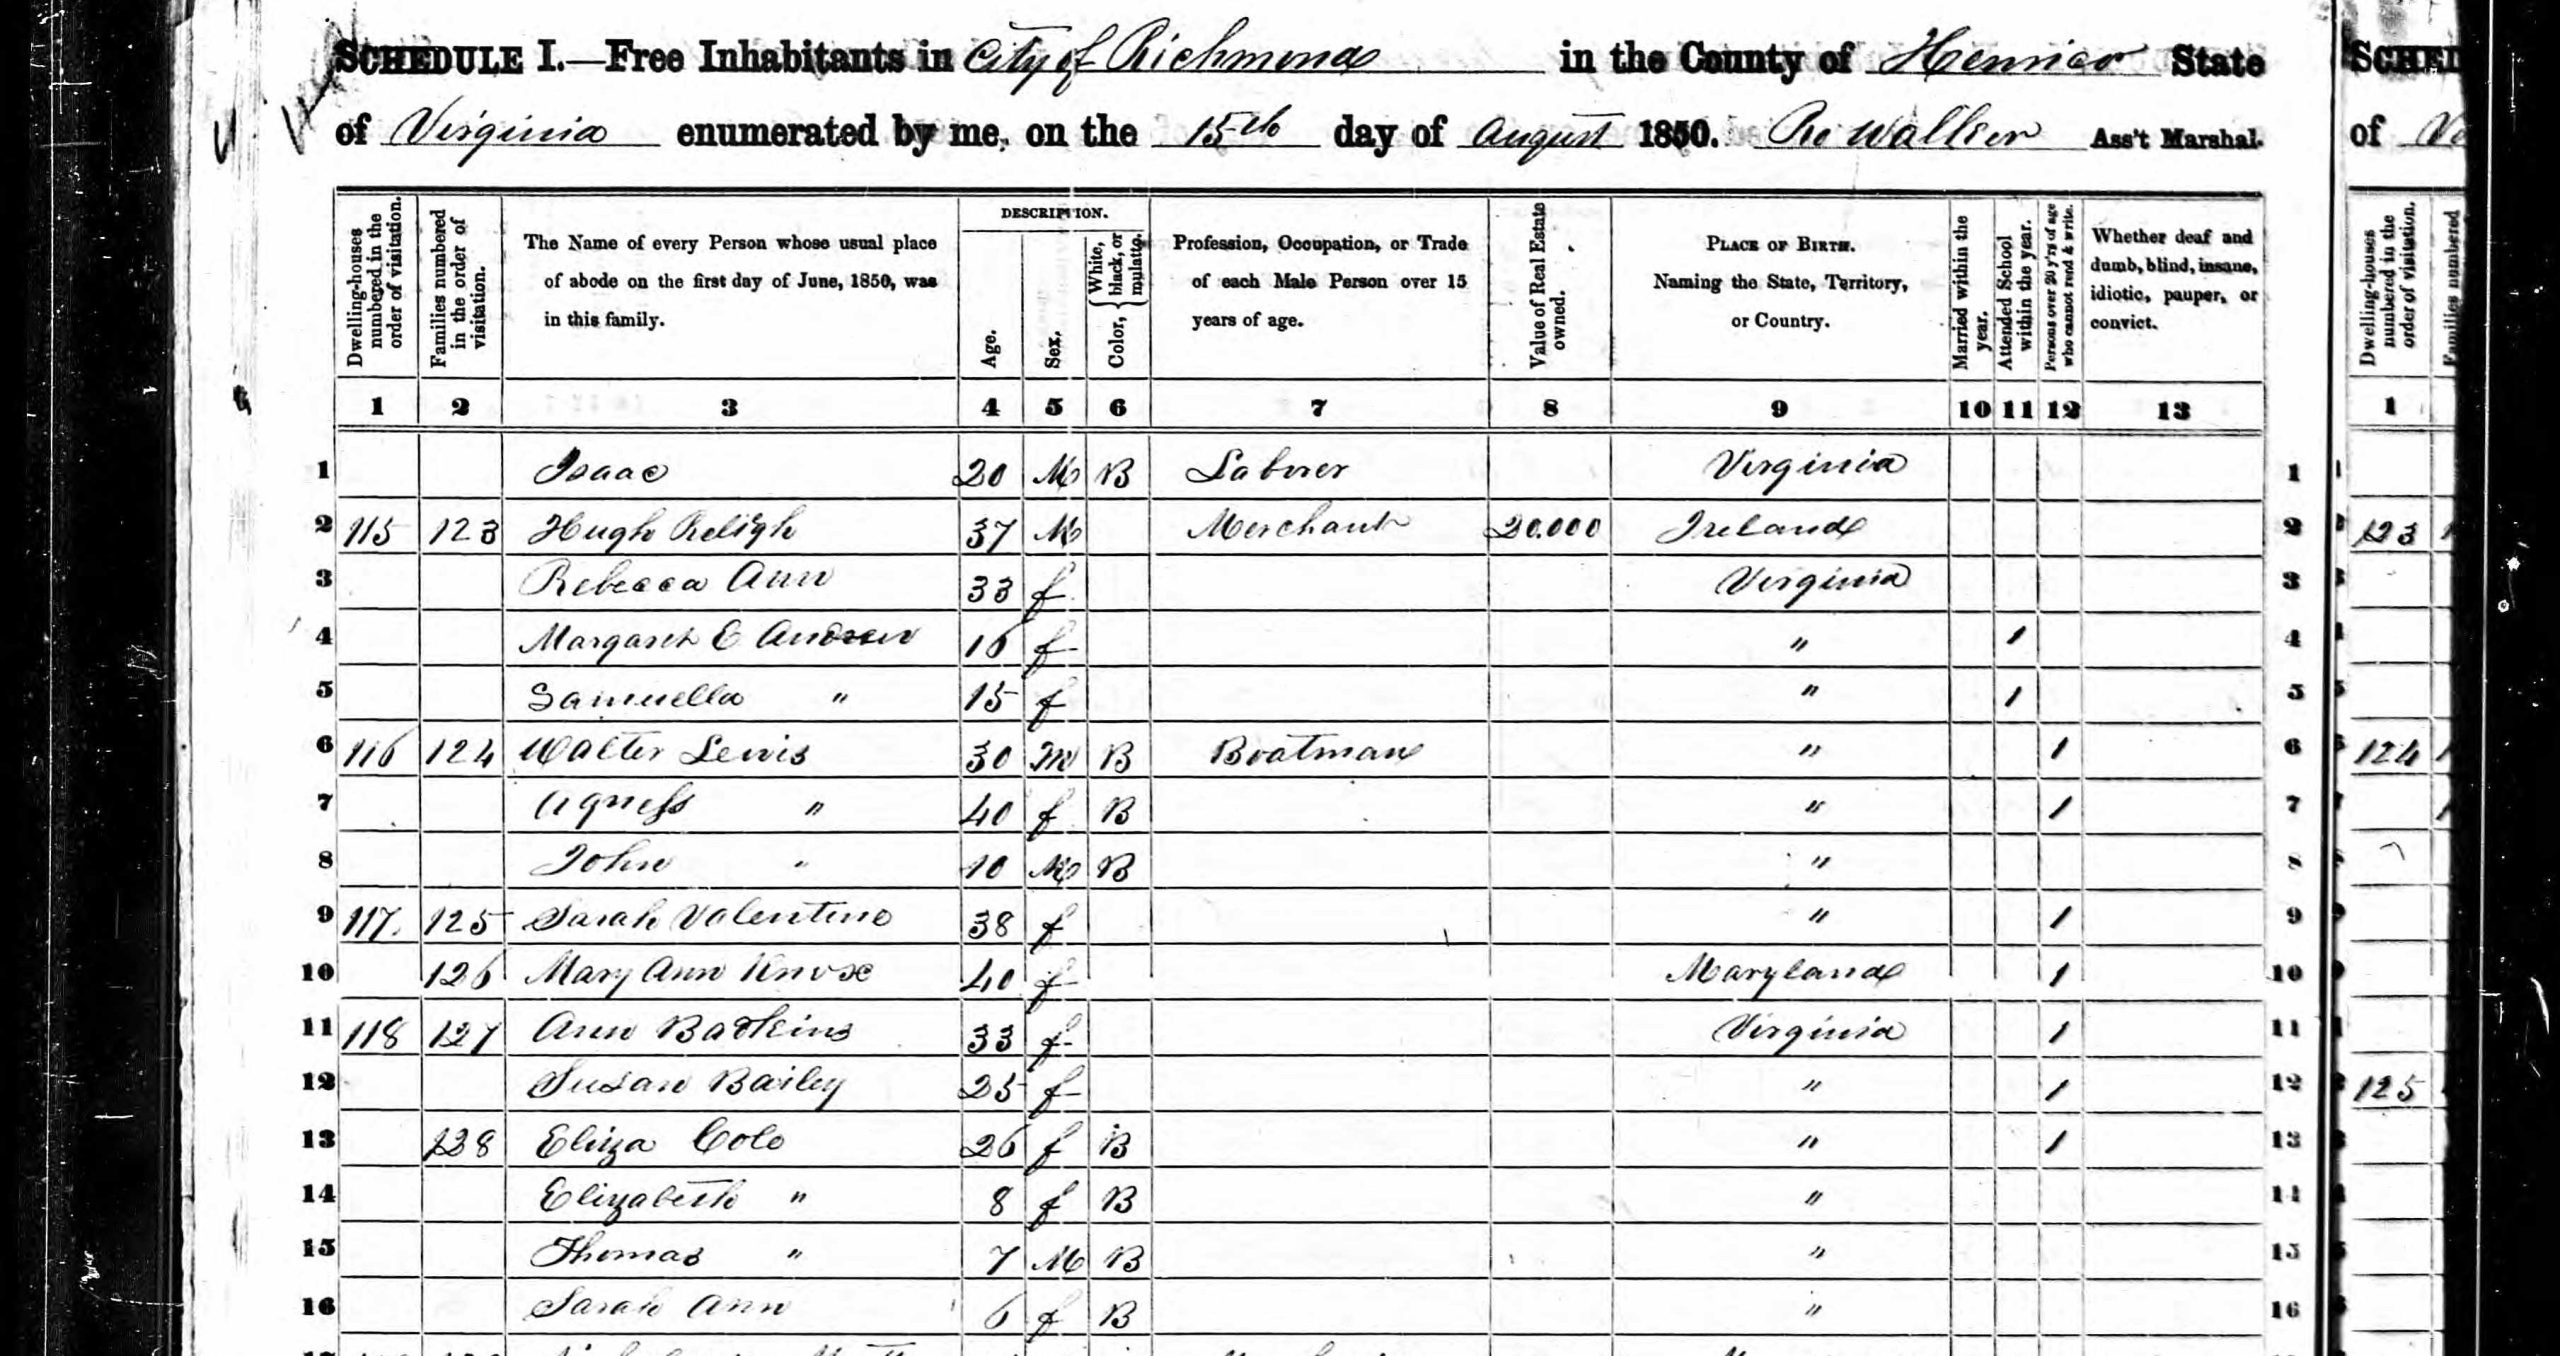 SCHEDULE I.—Free Inhabitants in City of Richmond in the County of Henrico State
of Virginia enumerated by me, on the 15th day of August 1850. Ro Walker Ass't Marshal.
Dwelling-houses numbered in the order of visitation.
Families numbered in the order of visitation.
The Name of every Person whose usual place of abode on the first day of June, 1850, was in this family.
DESCRIPTION.
Age.
Sex.
Color, { White, black, or mulatto.
Profession, Occupation, or Trade of each Male Person over 15 years of age.
Value of Real Estate owned.
PLACE OF BIRTH. Naming the State, Territory, or Country.
Married within the year.
Attended School within the year.
Persons over 20 y'rs of age who cannot read & write.
Whether deaf and dumb, blind, insane, idiotic, pauper, or convict.
1 2 3 4 5 6 7 8 9 10 11 12 13
1 Isaac 20 M B Laborer Virginia 1
2 115 123 Hugh Religh 37 M Merchant 20.000 Ireland 2
3 Rebecca Ann 33 f Virginia 3
4 Margaret E 16 f " 1 4
5 Samuella " 15 f " 1 5
6 116 124 Walter Lewis 30 M B Boatman " 1 6
7 Agness " 40 f B " 1 7
8 John " 10 M B " 8
9 117. 125 Sarah Valentine 38 f " 1 9
10 126 Mary Ann Knox 40 f Maryland 1 10
11 118 127 Ann Badkins 33 f Virginia 1 11
12 Susan Bailey 25 f " 1 12
13 128 Eliza Cole 26 f B " 1 13
14 Elizabeth " 8 f B " 14
15 Thomas " 7 M B " 15
16 Sarah Ann 6 f B " 16
SCHED
of
Dwelling-houses numbered in the order of visitation.
Families numbered
1
123
124
125